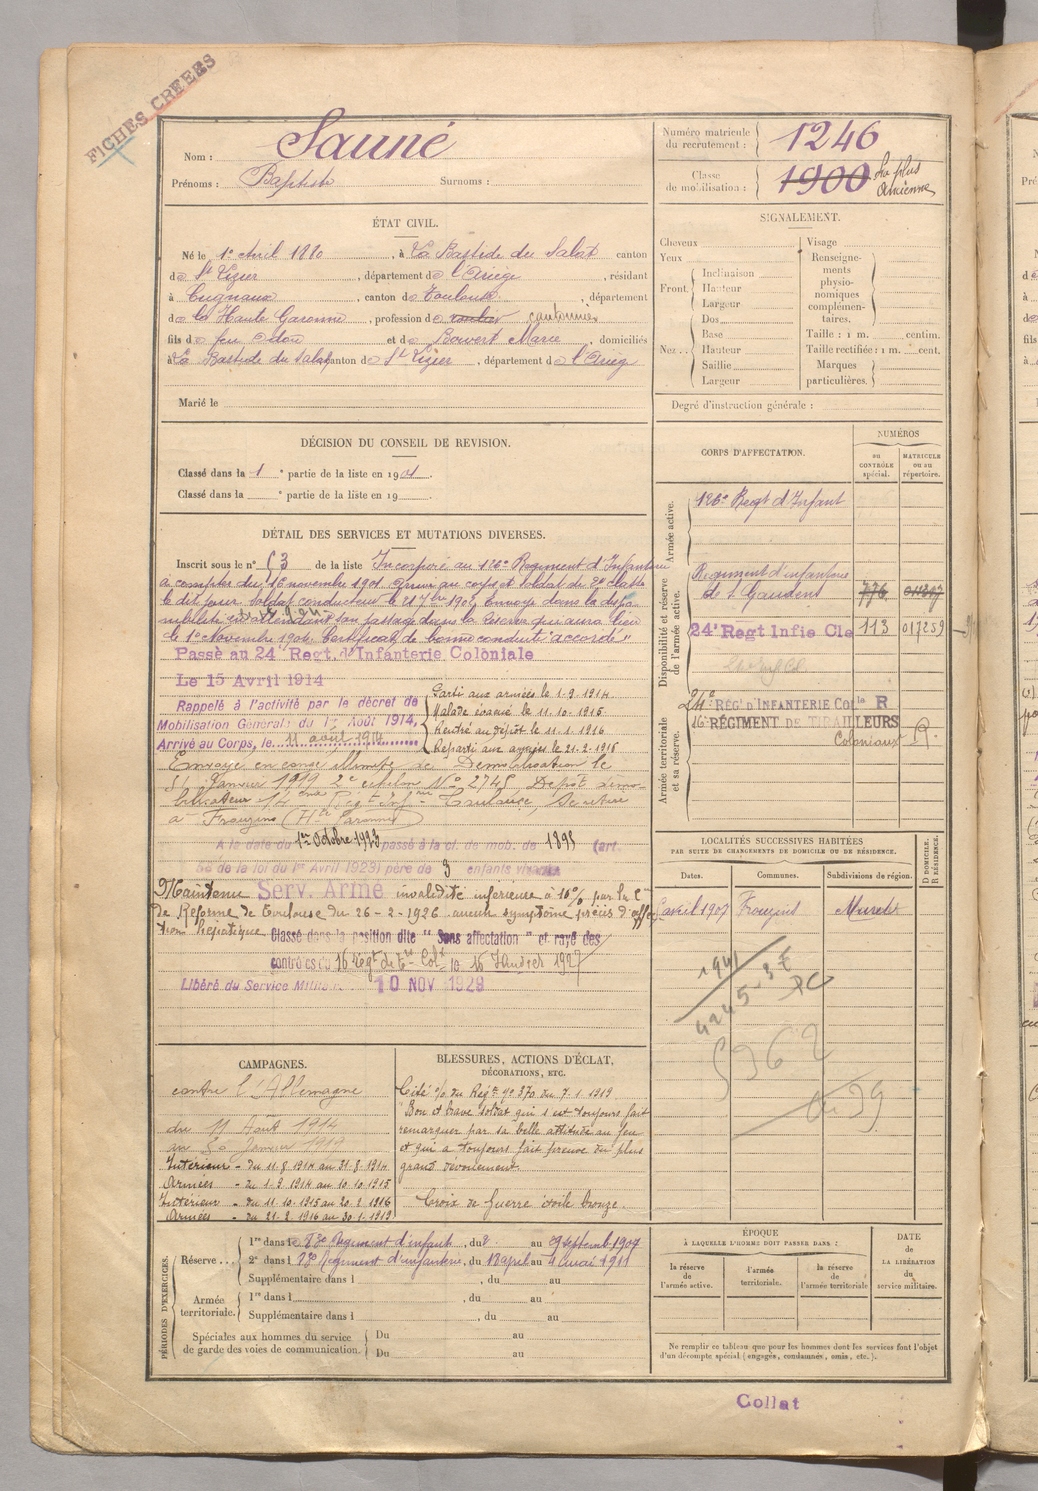 FICHES CREEES
Nom : Sauné
Prénoms : Baptiste Surnoms :
Numéro matricule du recrutement : 1246
Classe de mobilisation : 1900 La plus Ancienne
ÉTAT CIVIL.
Né le 1er Avril 1880, à La Bastide du Salat canton
de St Lizier, département de l'Ariège, résidant
à Cugnaux, canton de Toulouse, département
de la Haute Garonne, profession de cantonnier
fils de feu Odon et de Bouvert Marie, domiciliés
à La Bastide du Salat canton de St Lizier, département de l'Ariège
Marié le
SIGNALEMENT.
Cheveux
Yeux
Front. Inclinaison
Hauteur
Largeur
Nez. Dos
Base
Hauteur
Saillie
Largeur
Visage
Renseignements physionomiques complémentaires.
Taille : 1 m. centim.
Taille rectifiée : 1 m. cent.
Marques particulières.
Degré d'instruction générale :
DÉCISION DU CONSEIL DE REVISION.
Classé dans la 1e partie de la liste en 1901.
Classé dans la e partie de la liste en 19
CORPS D'AFFECTATION.
NUMÉROS
au CONTRÔLE spécial.
MATRICULE ou au répertoire.
Armée active.
126e Regt d'Infant
Disponibilité et réserve de l'armée active.
Régiment d'infanterie
de St Gaudens 776 011247
24e Regt Infie Cle 113 017259
Armée territoriale et sa réserve.
24e REGt D'INFANTERIE Colle R
16e RÉGIMENT DE TIRAILLEURS
Coloniaux R.
DÉTAIL DES SERVICES ET MUTATIONS DIVERSES.
Inscrit sous le n° 63 de la liste Incorporé au 126e Régiment d'Infanterie
à compter du 16 novembre 1901. Arrivé au corps et soldat de 2e classe
le dit jour. Soldat conducteur le 21 7bre 1902. Envoyé dans la dispo
nibilité en attendant son passage dans la réserve qui aura lieu
le 1er Novembre 1904. Certificat de bonne conduite "accordé"
Passé au 24e Regt. d'Infanterie Coloniale
Le 15 Avril 1914
Rappelé à l'activité par le décret de
Mobilisation Générale du 1er Août 1914,
Arrivé au Corps, le 11 août 1914
Parti aux armées le 1.9.1914
Malade évacué le 11.10.1915
Rentré au dépôt le 11.1.1916
Réparti aux armées le 21.2.1916
Envoyé en congé illimité de Démobilisation le
Janvier 1919 2e échelon No 2745 Dépôt démo
bilisateur 14ème Régt Infrie Toulouse, Se retire
à Frouzins (Hte Garonne)
A la date du 1er Octobre 1923 passé à la cl. de mob. de 1895 (art.
58 de la loi du 1er Avril 1923) père de 3 enfants vivants
Maintenu Serv. Armé invalidité inférieure à 10% par la Con
de Réforme de Toulouse du 26-2-1926. aucun symptôme précis d'affec
tion hépatique Classé dans la position dite "Sans affectation" et rayé des
contrôles du 16 Régt de Tirs Colx le 16 Janvier 1927
Libéré du Service Militaire 10 NOV 1929
LOCALITÉS SUCCESSIVES HABITÉES
PAR SUITE DE CHANGEMENTS DE DOMICILE OU DE RÉSIDENCE.
Dates. Communes. Subdivisions de région. D DOMICILE. R RÉSIDENCE.
avril 1907 Frouzins Muret
1941
4245-37
PC
5962
CAMPAGNES.
contre l'Allemagne
du 11 Août 1914
au 30 Janvier 1919
Intérieur - du 11.8.1914 au 31.8.1914
Armées - du 1.9.1914 au 10.10.1915
Intérieur - du 11.10.1915 au 20.2.1916
Armées - du 21.2.1916 au 30.1.1919
BLESSURES, ACTIONS D'ÉCLAT,
DÉCORATIONS, ETC.
Cité o/ du Régt no 370 du 7.1.1919
"Bon et brave soldat qui s'est toujours fait
remarquer par sa belle attitude au feu
et qui a toujours fait preuve du plus
grand dévouement.
Croix de Guerre étoile bronze.
PÉRIODES D'EXERCICES.
Réserve
1re dans le 83e régiment d'infantie, du 2 au 29 septemb 1907
2e dans l 83e régiment d'infanterie, du 18 april au 4 mai 1911
Supplémentaire dans l , du au
Armée territoriale.
1re dans l , du au
Supplémentaire dans l , du au
Spéciales aux hommes du service de garde des voies de communication.
Du au
Du au
ÉPOQUE
A LAQUELLE L'HOMME DOIT PASSER DANS :
la réserve de l'armée active.
l'armée territoriale.
la réserve de l'armée territoriale
DATE DE LA LIBÉRATION du service militaire.
Ne remplir ce tableau que pour les hommes dont les services font l'objet
d'un décompte spécial (engagés, condamnés, omis, etc.).
Collat